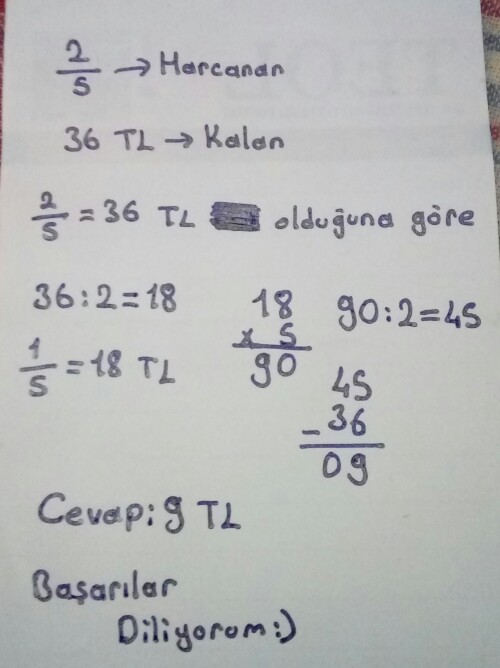 2/5 → Harcanan
36 TL → Kalan
2/5 = 36 TL olduğuna göre
36:2=18
1/5 = 18 TL
18
x 5
90
90:2=45
45
-36
09
Cevap: 9 TL
Başarılar
Diliyorum:)